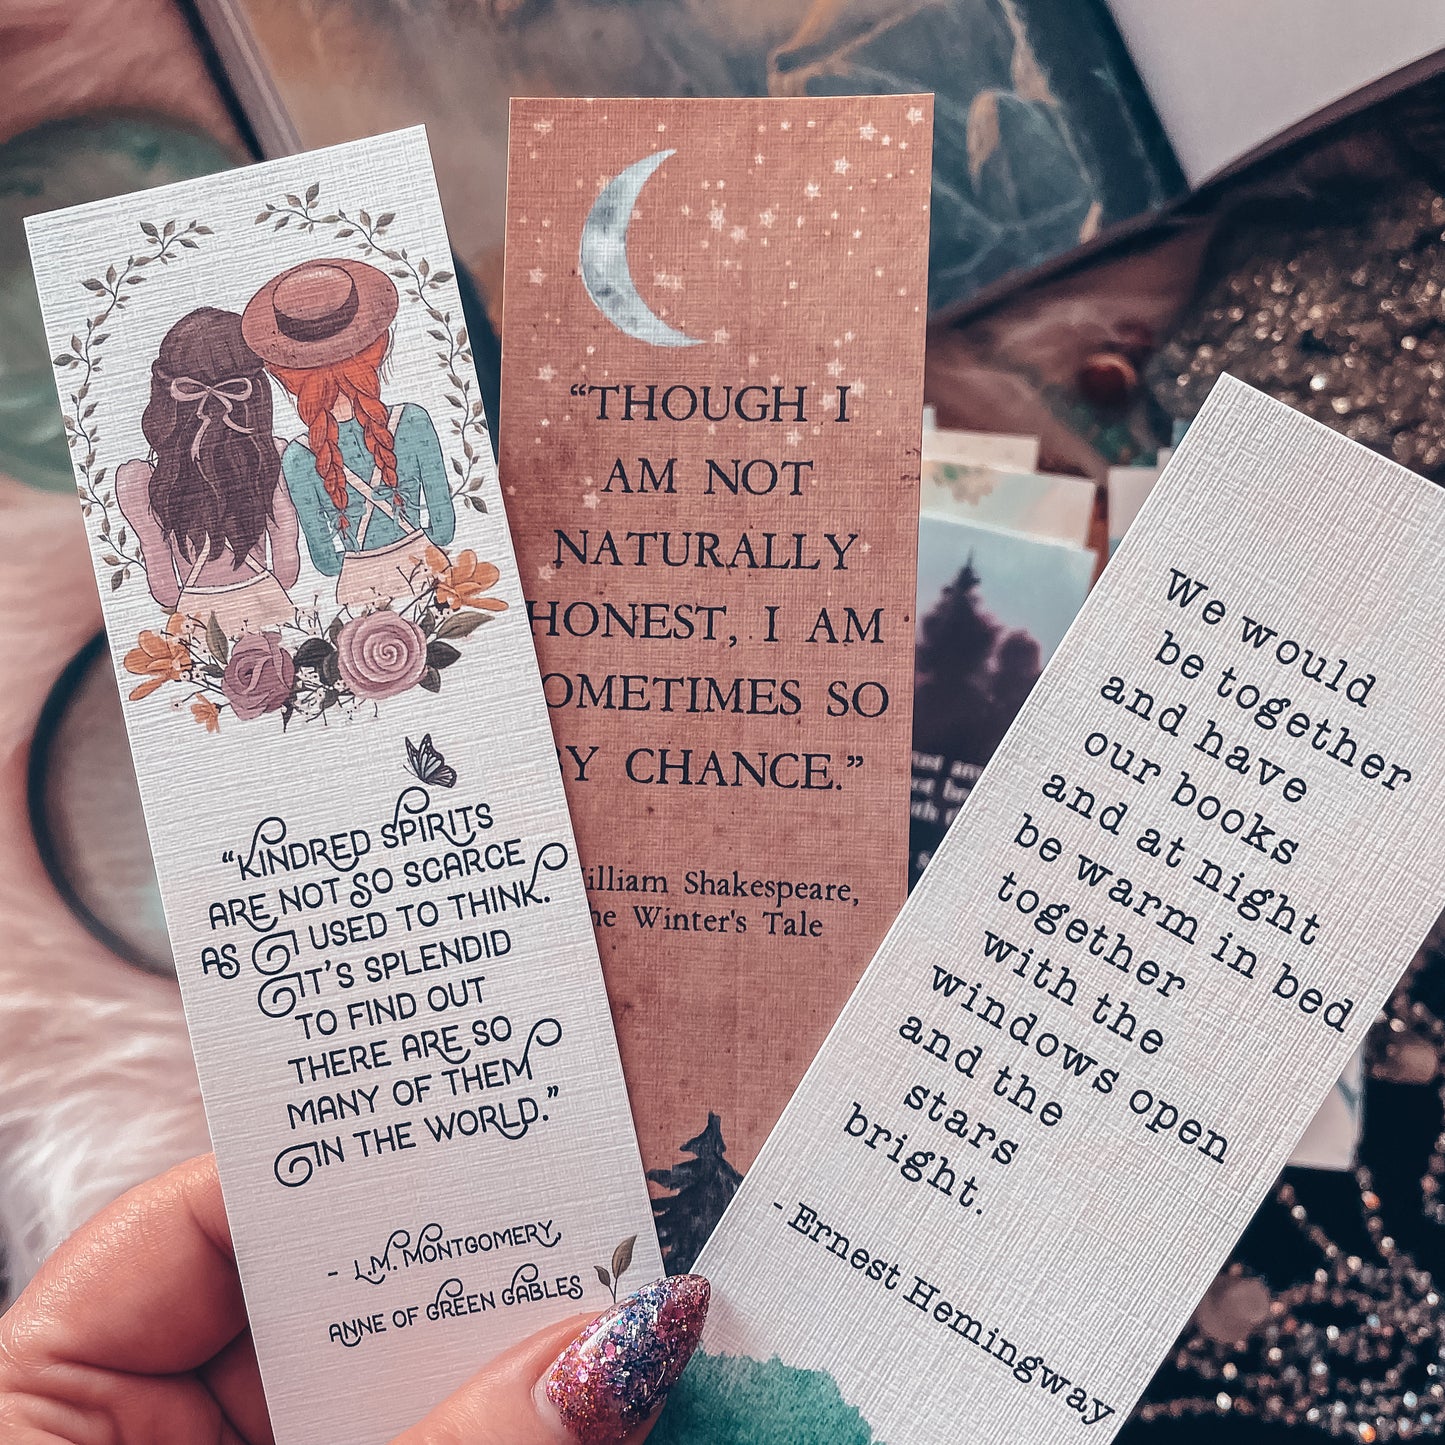 “KINDRED SPIRITS
ARE NOT SO SCARCE
AS I USED TO THINK.
IT'S SPLENDID
TO FIND OUT
THERE ARE SO
MANY OF THEM
IN THE WORLD.”
- L.M. MONTGOMERY,
ANNE OF GREEN GABLES
“THOUGH I
AM NOT
NATURALLY
HONEST, I AM
OMETIMES SO
Y CHANCE.”
illiam Shakespeare,
he Winter's Tale
We would
be together
and have
our books
and at night
be warm in bed
together
with the
windows open
and the
stars
bright.
- Ernest Hemingway